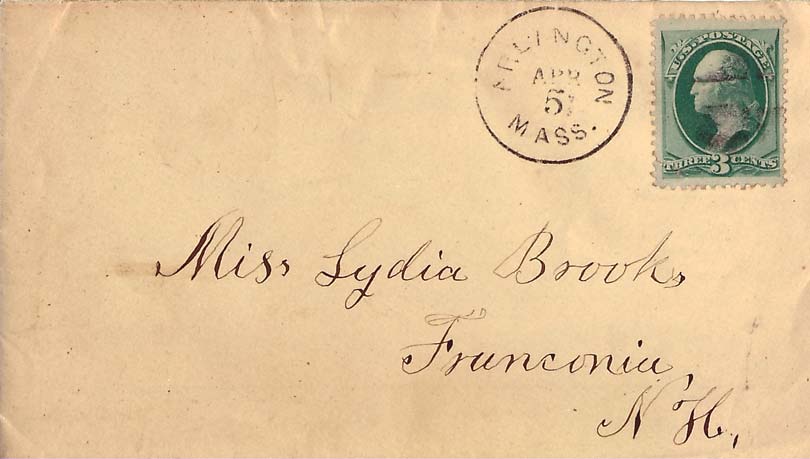 ARLINGTON
APR
5
MASS.
U.S. POSTAGE
THREE 3 CENTS
Miss Lydia Brooks
Franconia,
N H.,